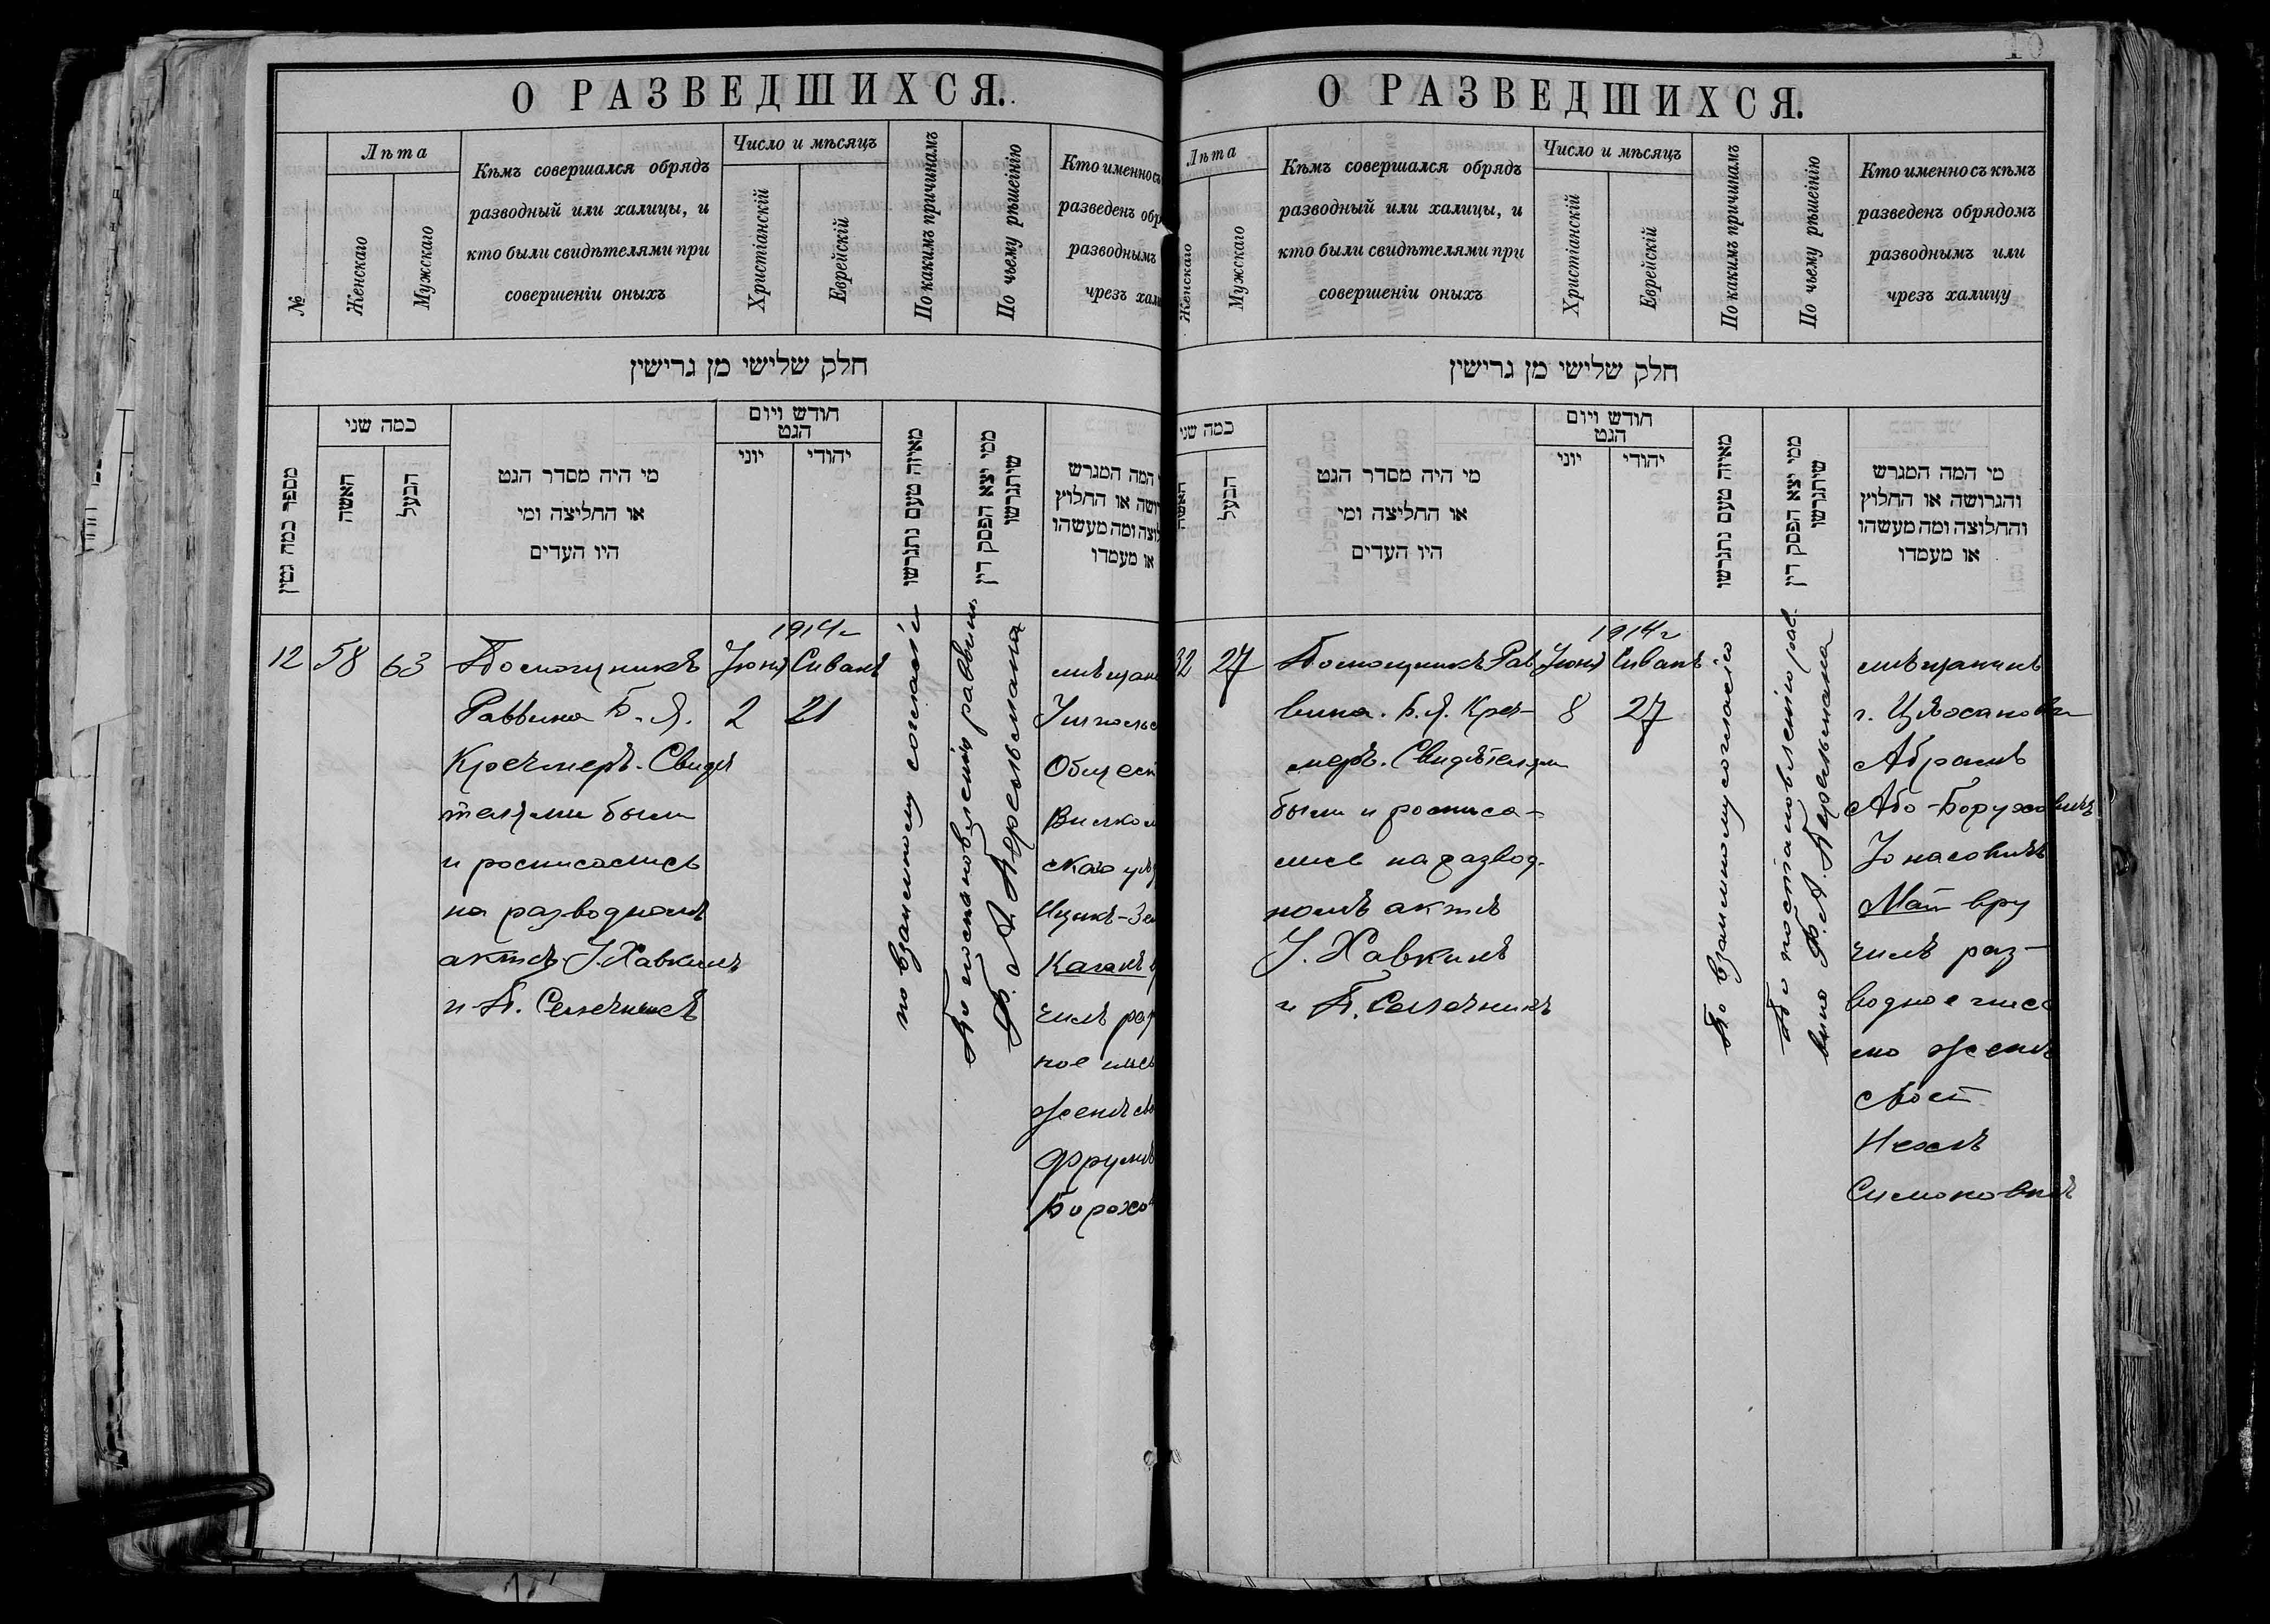 О РАЗВЕДШИХСЯ.
№
Лѣта
Женскаго
Мужскаго
Кѣмъ совершался обрядъ
разводный или халицы, и
кто были свидѣтелями при
совершеніи оныхъ
Число и мѣсяцъ
Христіанскій
Еврейскій
По какимъ причинамъ
По чьему рѣшеінію
Кто именно съ
разведенъ обр
разводнымъ
чрезъ хал
חלק שלישי מן גרישין
מספר כמה גטין
כמה שני
האשה
הבעל
מי היה מסדר הגט
או החליצה ומי
היו העדים
חודש ויום
הגט
יוני
יהודי
מאיזה טעם נתגרשו
ממי יצא הפסק דין
שיתגרשו
המה המגרש
ושה או החלוץ
לוצה ומה מעשהו
או מעמדו
12
58
63
Помощникъ
Раввина Б. Я.
Кречмеръ. Свидѣ
телями были
и росписались
на разводномъ
актѣ. І. Хавкинъ
и П. Селечникъ
1914 г
Іюня
2
Сиванъ
21
по взаимному согласію
По постановленію раввина
Ф. А. Перельмана
мѣщани
Ушпольс
Общест
Вилком
скаго уѣз
Ицикъ-Зел
Каганъ в
чилъ раз
ное пись
женѣ сво
Фрумѣ
Борохов
10
О РАЗВЕДШИХСЯ.
Лѣта
Женскаго
Мужскаго
Кѣмъ совершался обрядъ
разводный или халицы, и
кто были свидѣтелями при
совершеніи оныхъ
Число и мѣсяцъ
Христіанскій
Еврейскій
По какимъ причинамъ
По чьему рѣшеінію
Кто именно съ кѣмъ
разведенъ обрядомъ
разводнымъ или
чрезъ халицу
חלק שלישי מן גרישין
כמה שני
האשה
הבעל
מי היה מסדר הגט
או החליצה ומי
היו העדים
חודש ויום
הגט
יוני
יהודי
מאיזה טעם נתגרשו
ממי יצא הפסק דין
שיתגרשו
מי המה המגרש
והגרושה או החלוץ
והחלוצה ומה מעשהו
או מעמדו
32
27
Помощникъ Рав
вина. Б. Я. Креч-
меръ. Свидѣтелями
были и росписа-
лись на развод-
номъ актѣ
І. Хавкинъ
и П. Селечникъ
1914 г
Іюня
8
Сиванъ
27
По взаимному согласію
По постановленію рав-
вина Ф. А. Перельмана
мѣщанинъ
г. Цѣхановца
Абрамъ
Або-Боруховичъ
Іонасовичъ
Май вру
чилъ раз-
водное пись
мо женѣ
своей
Нехѣ
Симоновнѣ